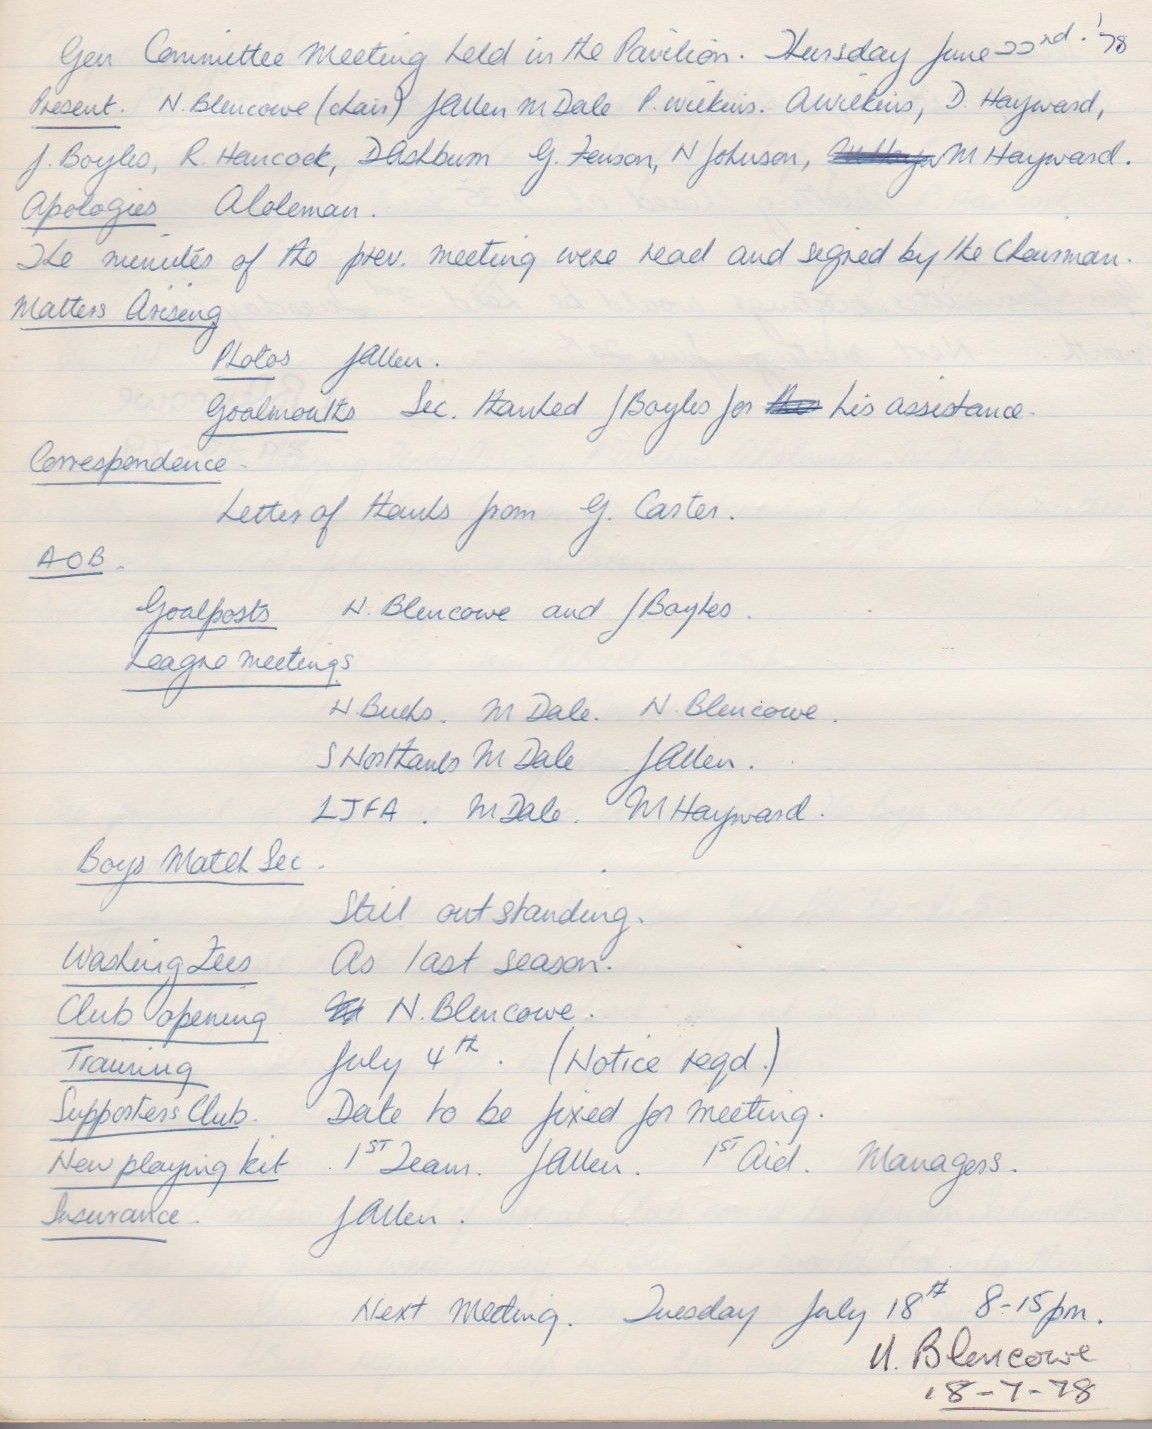 Gen Committee Meeting held in the Pavilion. Thursday June 22nd. '78
Present. N. Blencowe (chair) J Allen M Dale P. Wilkins. A Wilkins, D. Hayward,
J. Boyles, R. Hancock, D Ashburn G. Fenson, N Johnson, M Hayward.
Apologies A Coleman.
The minutes of the prev. meeting were read and signed by the Chairman.
Matters Arising
Photos J Allen.
Goalmouths Sec. thanked J Boyles for his assistance.
Correspondence.
Letter of thanks from G. Carter.
AOB.
Goalposts N. Blencowe and J Boyles.
League meetings
N Bucks. M Dale. N. Blencowe.
S Northants M Dale J Allen.
LJFA. M Dale. M Hayward.
Boys Match Sec.
Still outstanding.
Washing Fees As last season.
Club opening N. Blencowe.
Training July 4th. (Notice reqd.)
Supporters Club. Date to be fixed for meeting.
New playing kit. 1ST Team. J Allen. 1ST Aid. Managers.
Insurance. J Allen.
Next Meeting. Tuesday July 18th 8-15pm.
N. Blencowe
18-7-78